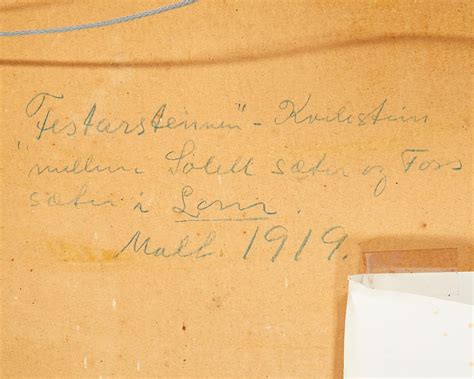 "Festarsteinen" - Kvilestein
mellem Solell sæter og Foss
sæter i Lom.
Malt 1919.